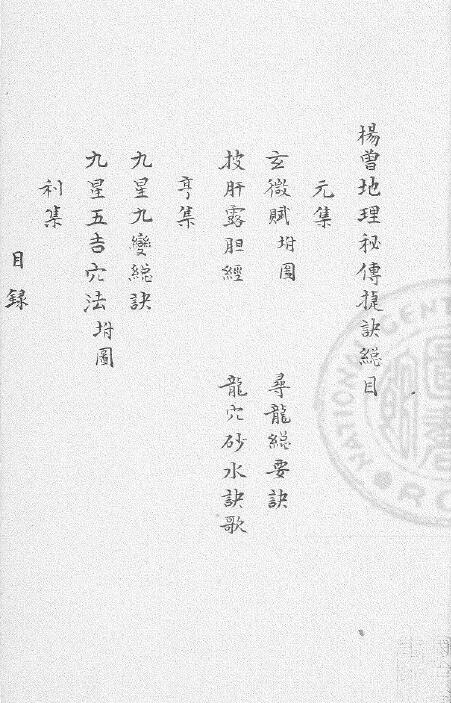 楊曾地理秘傳捷訣總目
元集
玄微賦 坿圖　尋龍總要訣
披肝露胆經　龍穴砂水訣歌
亨集
九星九變總訣
九星五吉穴法 坿圖
利集
目録
NATIONAL CENT
RO